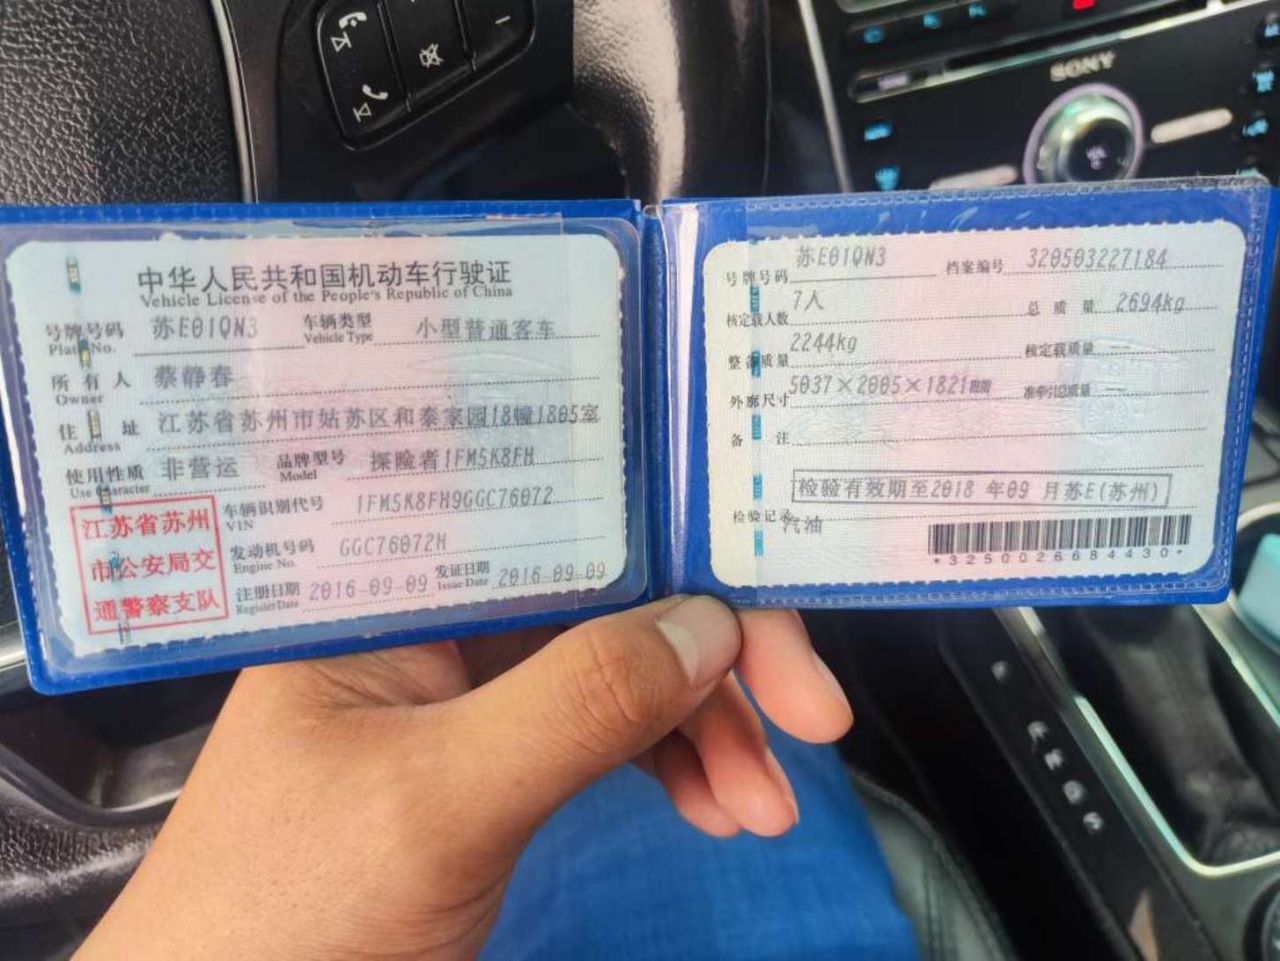 SONY
中华人民共和国机动车行驶证
Vehicle License of the People's Republic of China
号牌号码 苏E01QN3 车辆类型 小型普通客车
Plate No. Vehicle Type
所有人 蔡静春
Owner
住址 江苏省苏州市姑苏区和泰家园18幢1805室
Address
使用性质 非营运 品牌型号 探险者1FM5K8FH
Use Character Model
江苏省苏州
市公安局交
通警察支队
车辆识别代号 1FM5K8FH9GGC76072
VIN
发动机号码 GGC76072H
Engine No.
注册日期 2016-09-09 发证日期 2016-09-09
Register Date Issue Date
号牌号码 苏E01QN3 档案编号 320503227184
核定载人数 7人 总质量 2694kg
整备质量 2244kg 核定载质量 —
外廓尺寸 5037×2005×1821mm 准牵引总质量 —
备注
检验有效期至2018 年09 月苏E(苏州)
检验记录
汽油
*3250026684430*